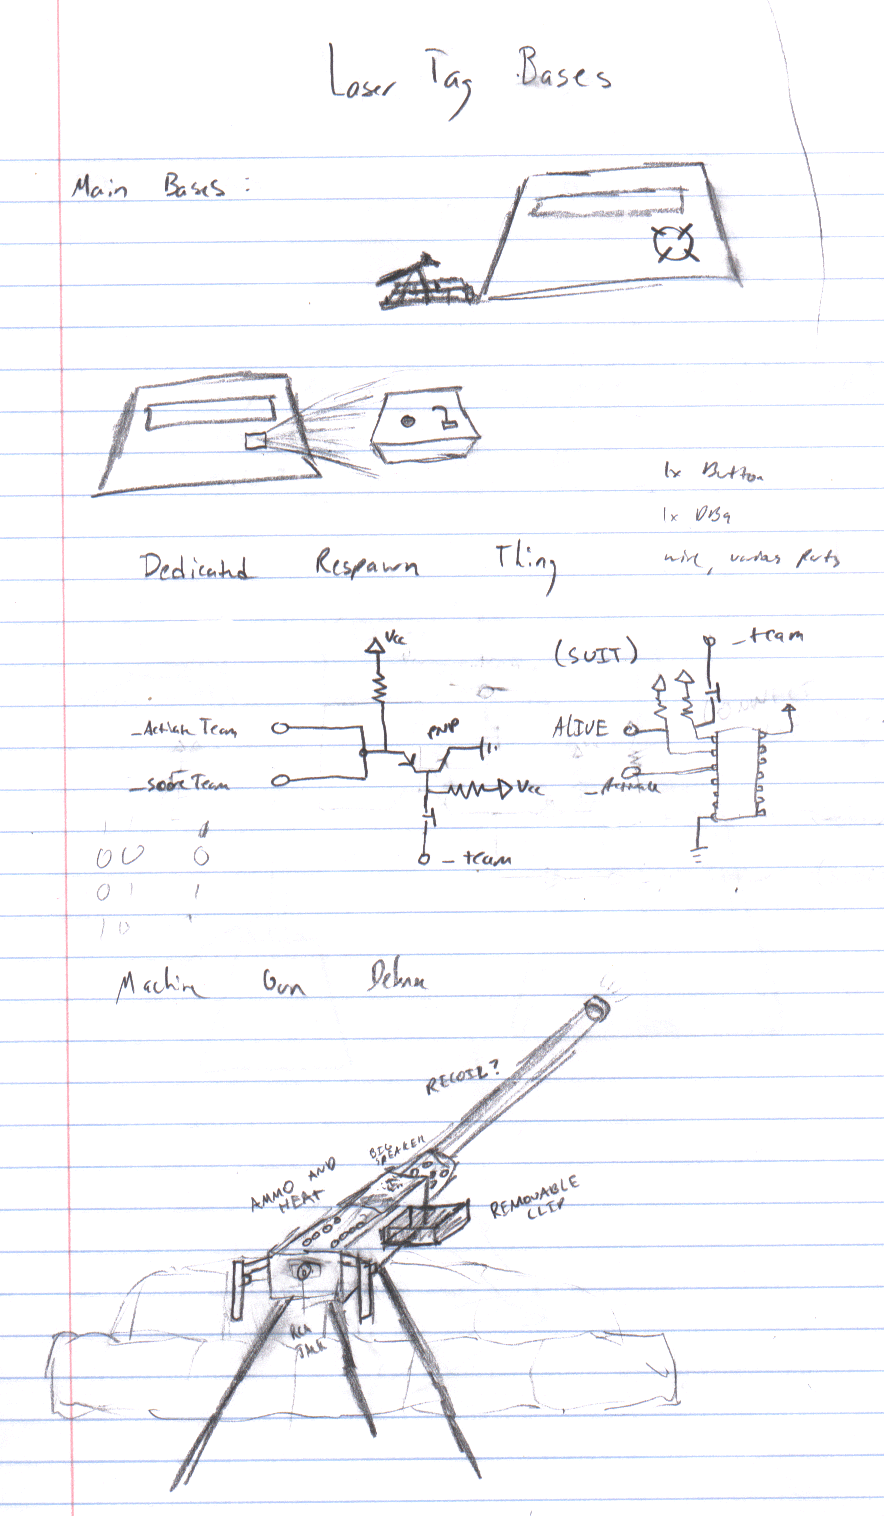 Laser Tag Bases
Main Bases:
1x Button
1x DB9
wire, various parts
Dedicated Respawn Thing
Vcc
(SUIT)
_team
_Activate Team
PNP
ALIVE
Team
Vcc
_Activate
_team
00 0
01 1
10
Machine Gun Deluxe
RECOIL?
BIG
SPEAKER
AMMO AND
HEAT
REMOVABLE
CLIP
RCA
JACK